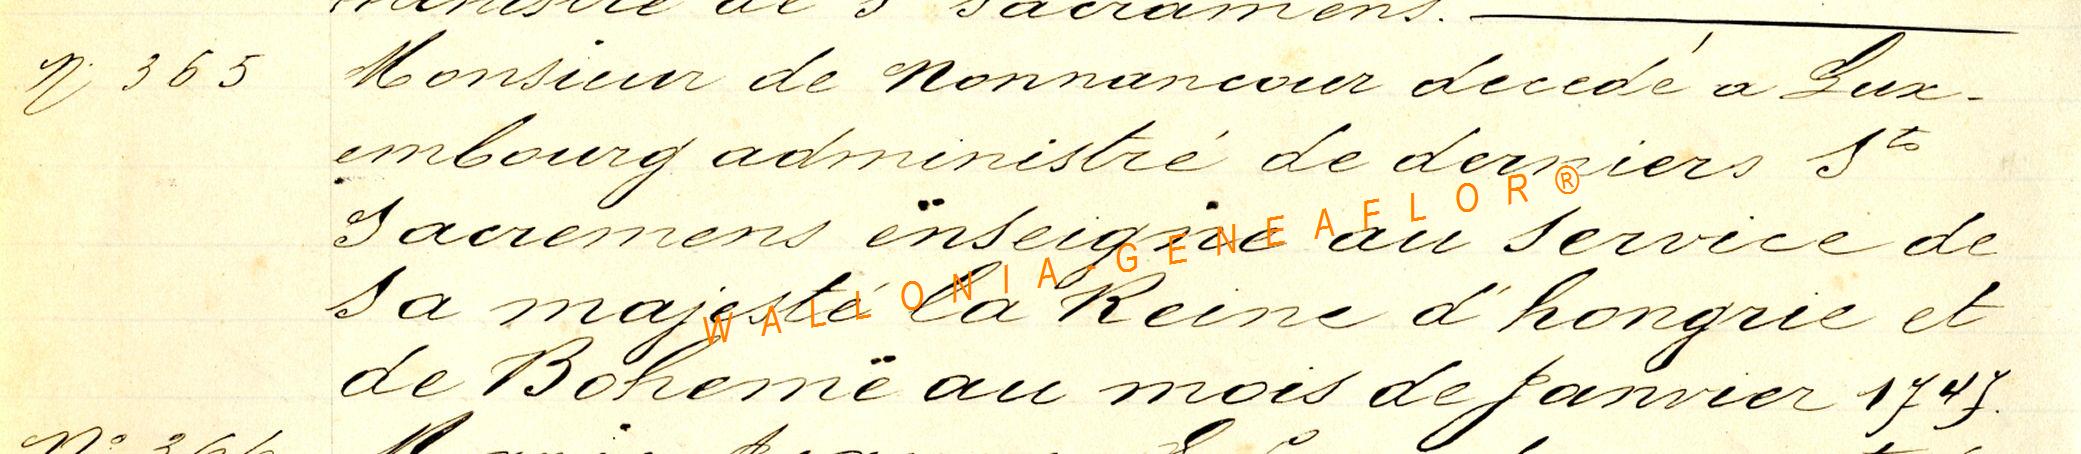 de S Sacramens.
N. 365 Monsieur de Nonnancour decedé a Lux-
embourg administré de derniers Sts
Sacremens ënseigne au service de
Sa majesté la Reine d'hongrie et
de Bohemë au mois de Janvier 1747.
No 366
WALLONIA-GENEAFLOR®